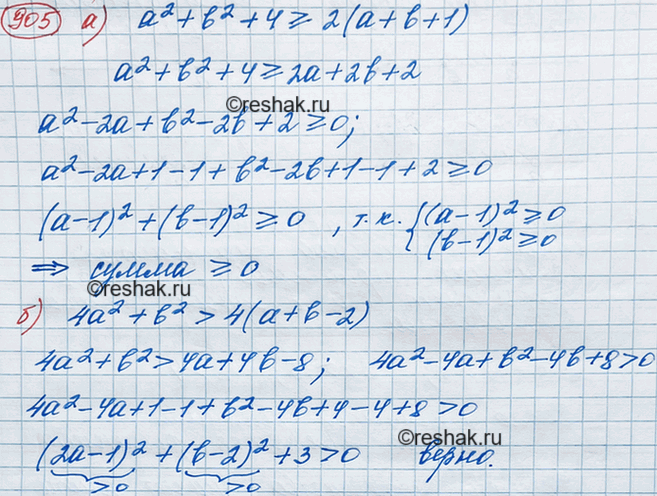 905 а) a² + b² + 4 ≥ 2(a + b + 1)
a² + b² + 4 ≥ 2a + 2b + 2
©reshak.ru
a² − 2a + b² − 2b + 2 ≥ 0;
a² − 2a + 1 − 1 + b² − 2b + 1 − 1 + 2 ≥ 0
(a − 1)² + (b − 1)² ≥ 0 , т.к. { (a − 1)² ≥ 0
(b − 1)² ≥ 0
⇒ сумма ≥ 0
©reshak.ru
б) 4a² + b² > 4(a + b − 2)
4a² + b² > 4a + 4b − 8; 4a² − 4a + b² − 4b + 8 > 0
4a² − 4a + 1 − 1 + b² − 4b + 4 − 4 + 8 > 0
©reshak.ru
(2a − 1)² + (b − 2)² + 3 > 0 верно.
>0 >0